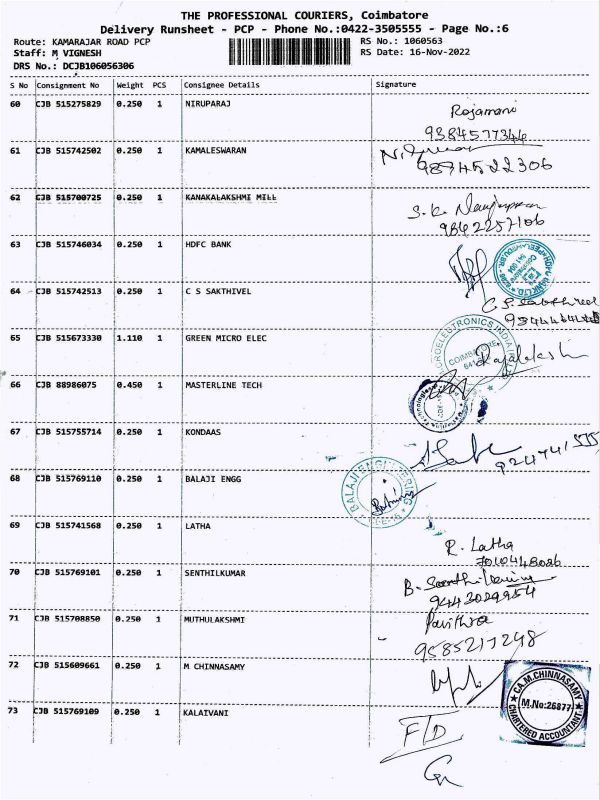 THE PROFESSIONAL COURIERS, Coimbatore
Delivery Runsheet - PCP - Phone No.:0422-3505555 - Page No.:6
Route: KAMARAJAR ROAD PCP
RS No.: 1060563
Staff: M VIGNESH
RS Date: 16-Nov-2022
DRS No.: DCJB106056306
S No Consignment No Weight PCS Consignee Details Signature
60 CJB 515275829 0.250 1 NIRUPARAJ
Rajamani
9384577344
61 CJB 515742502 0.250 1 KAMALESWARAN
9874522306
62 CJB 515700725 0.250 1 KANAKALAKSHMI MILL
9842257106
63 CJB 515746034 0.250 1 HDFC BANK
64 CJB 515742513 0.250 1 C S SAKTHIVEL
65 CJB 515673330 1.110 1 GREEN MICRO ELEC
COIMBATORE
66 CJB 88986075 0.450 1 MASTERLINE TECH
67 CJB 515755714 0.250 1 KONDAAS
68 CJB 515769110 0.250 1 BALAJI ENGG
BALAJI ENGINEERING
69 CJB 515741568 0.250 1 LATHA
R. Latha
7010448086
70 CJB 515769101 0.250 1 SENTHILKUMAR
9443029954
71 CJB 515708850 0.250 1 MUTHULAKSHMI
Pavithra
9585217248
72 CJB 515609661 0.250 1 M CHINNASAMY
CA. M. CHINNASAMY
M.No:26877
CHARTERED ACCOUNTANT
73 CJB 515769109 0.250 1 KALAIVANI